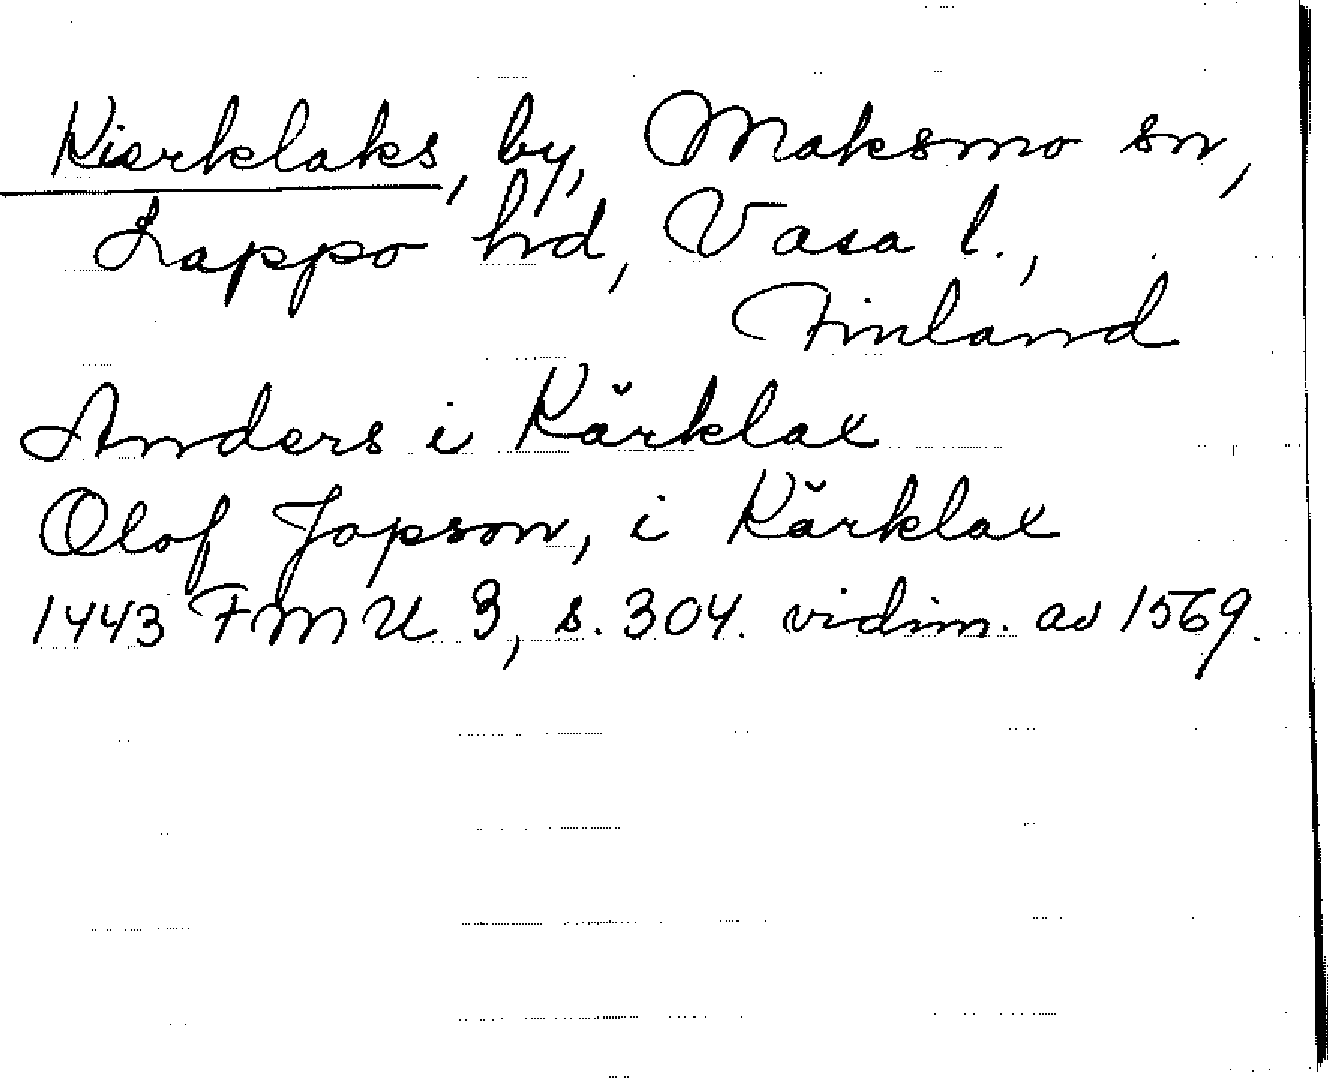 Kierklaks, by, Maksmo sn,
Lappo hd, Vasa l.,
Finland
Anders i Kärklax
Olof Jopson, i Kärklax
1443 FMU 3, s. 304. vidim. av 1569.